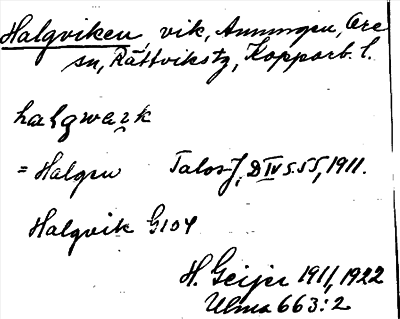 Halgviken, vik, Amungen, Ore
sn, Rättvikstg, Kopparb. l.
halgwærk
= Halgen Talosf, D IV s. 55, 1911.
Halgvik G104
H. Geijer 1911, 1922
Ulma 663:2